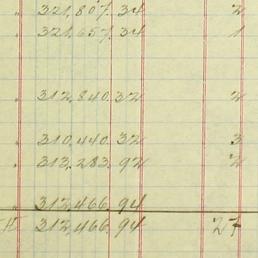 " 321,807.34 2
" 321,657.34 1
" 312,840.32 2
" 310,440.32 3
" 313,283.92 2
" 312,466.94
H 312,466.94 27